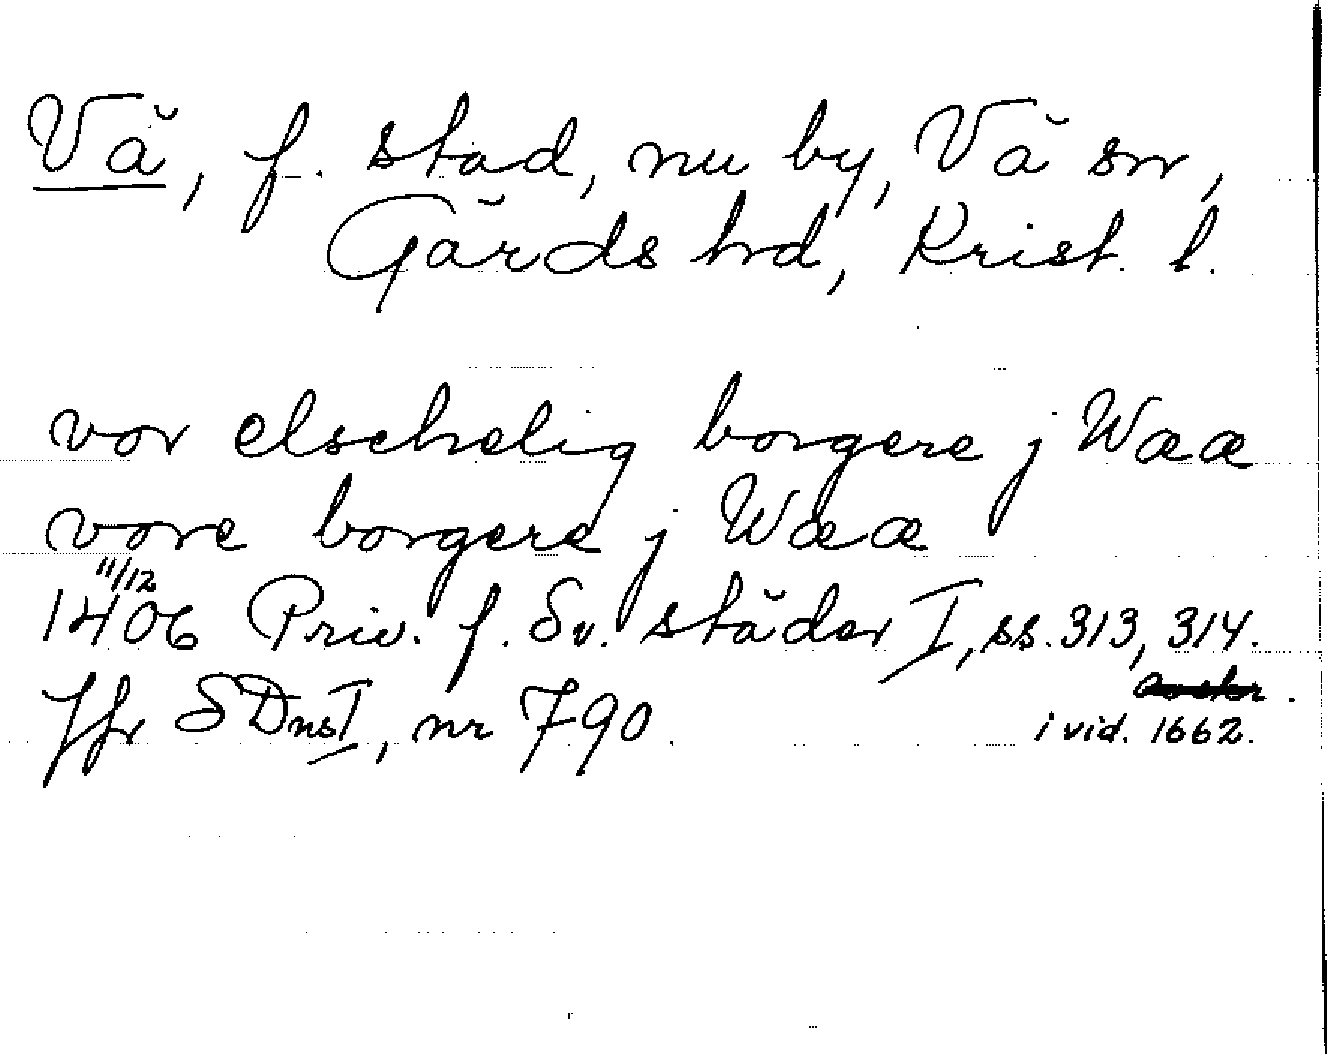 Vå, f. stad, nu by, Vå sn,
Gärds hd, Krist. l.
vor elschelig borgere j Waa
vore borgere j Waa
11/12
1406 Priv. f. Sv. städer I, ss. 313, 314.
Jfr SDns I, nr 790.
i vid. 1662.